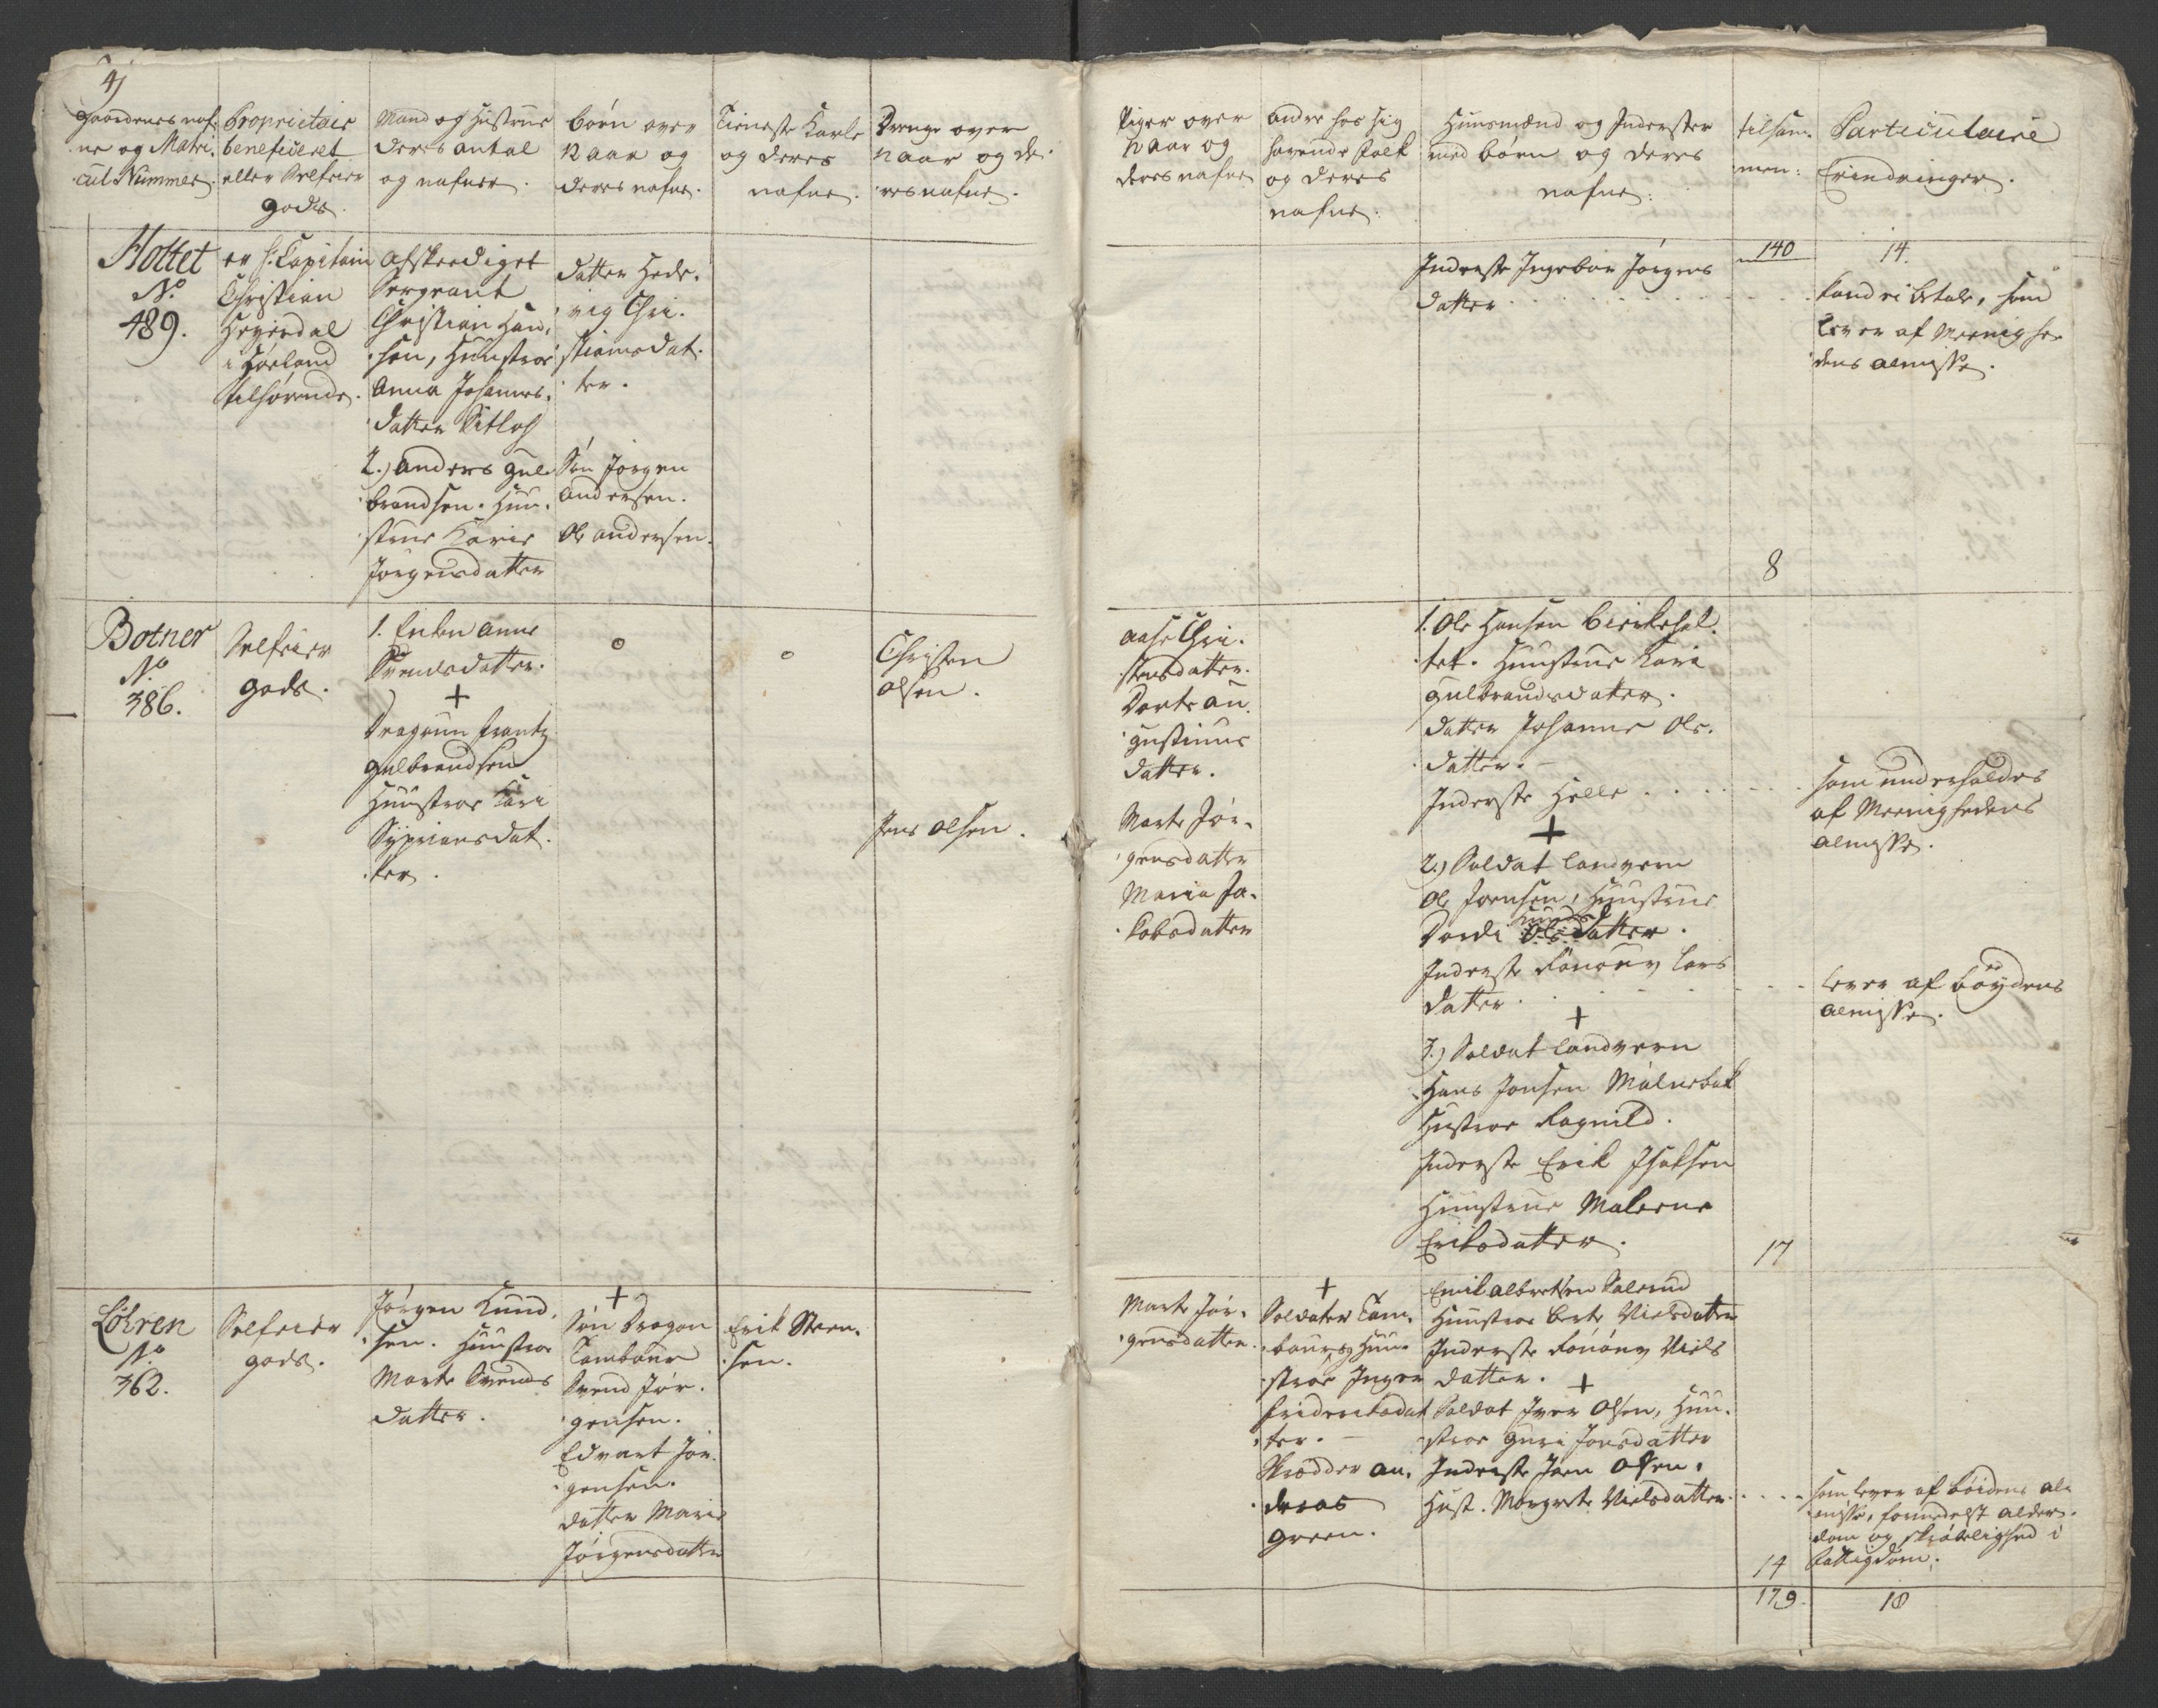 4)
Gaardenes naf-
ne og Matri-
cul Nummer.
Proprietair
beneficeret
eller Selfeier
gods.
Mand og Hustrue
deres antal
og nafner.
børn over
12 aar og
deres nafne.
Tieneste Karle
og deres
nafne.
Drenge over
12 aar og de-
res nafne.
Piger over
12 aar og
deres nafne
andre hos sig
havende folk
og deres
nafne.
Huusmænd og Inderster
med børn og deres
nafne.
tilsam-
men:
Particulaire
Erindringer.
Hottet
No.
489.
er H. Capitain
Christian
Heyerdal
i Høeland
tilhørende.
Afskeediget
Sergeant
Christian Han-
sen, Huustroe
Anna Johannes-
datter Sitlof
2.) Anders Gul-
brandsen. Huu-
strue Karie
Jørgensdatter
datter Hede-
vig Chri-
stiansdat-
ter.
Søn Jørgen
Andersen.
Ole Andersen.
Inderste Ingebor Jørgens
datter
140
8
14.
kand ei betale, som
lever af Meenighe-
dens almisse.
Botner
No.
386.
Selfeier
gods.
1. Enken Anne
Svendsdatter.
+
Dragoun Frantz
Gulbrandsen
Huustroe Kari
Sypriansdat-
ter.
o
o
Christen
Olsen.
Jens Olsen.
Aase Chri-
stensdatter.
Dorte Au-
gustinus
datter.
Marte Jør-
gensdatter
Maria Ja-
kobsdatter
1. Ole Hansen Bierkehol-
tet. Huustrue Kari
Gulbrandsdatter.
datter Johanne Ols-
datter.
Inderste Helle
+
2.) Soldat Landvern
Ole Joensen, Huustrue
Dordi Olsdatter.
Inderste Rønnøv Lars
datter.
+
3.) Soldat Landvern
Hans Jonsen Mølnebak
Hustroe Ragnild.
Inderste Erik Isaksen
Huustrue Malene
Eriksdatter.
17
som underholdes
af Meenighedens
almisse.
lever af bøydens
almisse.
Løkren
No.
362.
Selfeier
gods.
Jørgen Knud-
sen. Huustroe
Marte Svends
datter.
+
Søn Dragon
Tambour
Svend Jør-
gensen.
Edvart Jør-
gensen.
datter Marie
Jørgensdatter
Erik Steen-
sen.
Marte Jør-
gensdatter.
+
Soldater Tam-
bours Huu-
stroe Inger
Frideriksdat
ter.
Skredder An-
dreas
Green.
Emik Albretsen Salerud
Huustroe Berte Nielsdatter
Inderste Rønnøv Niels
datter. +
Soldat Iver Olsen, Huu-
stroe Guri Jonsdatter
Inderste Joen Olsen.
Hust. Margrete Nielsdatter
14
179.
som lever af bøidens al-
misse, formedelst alder-
dom og skrøbelighed i
fattigdom.
18